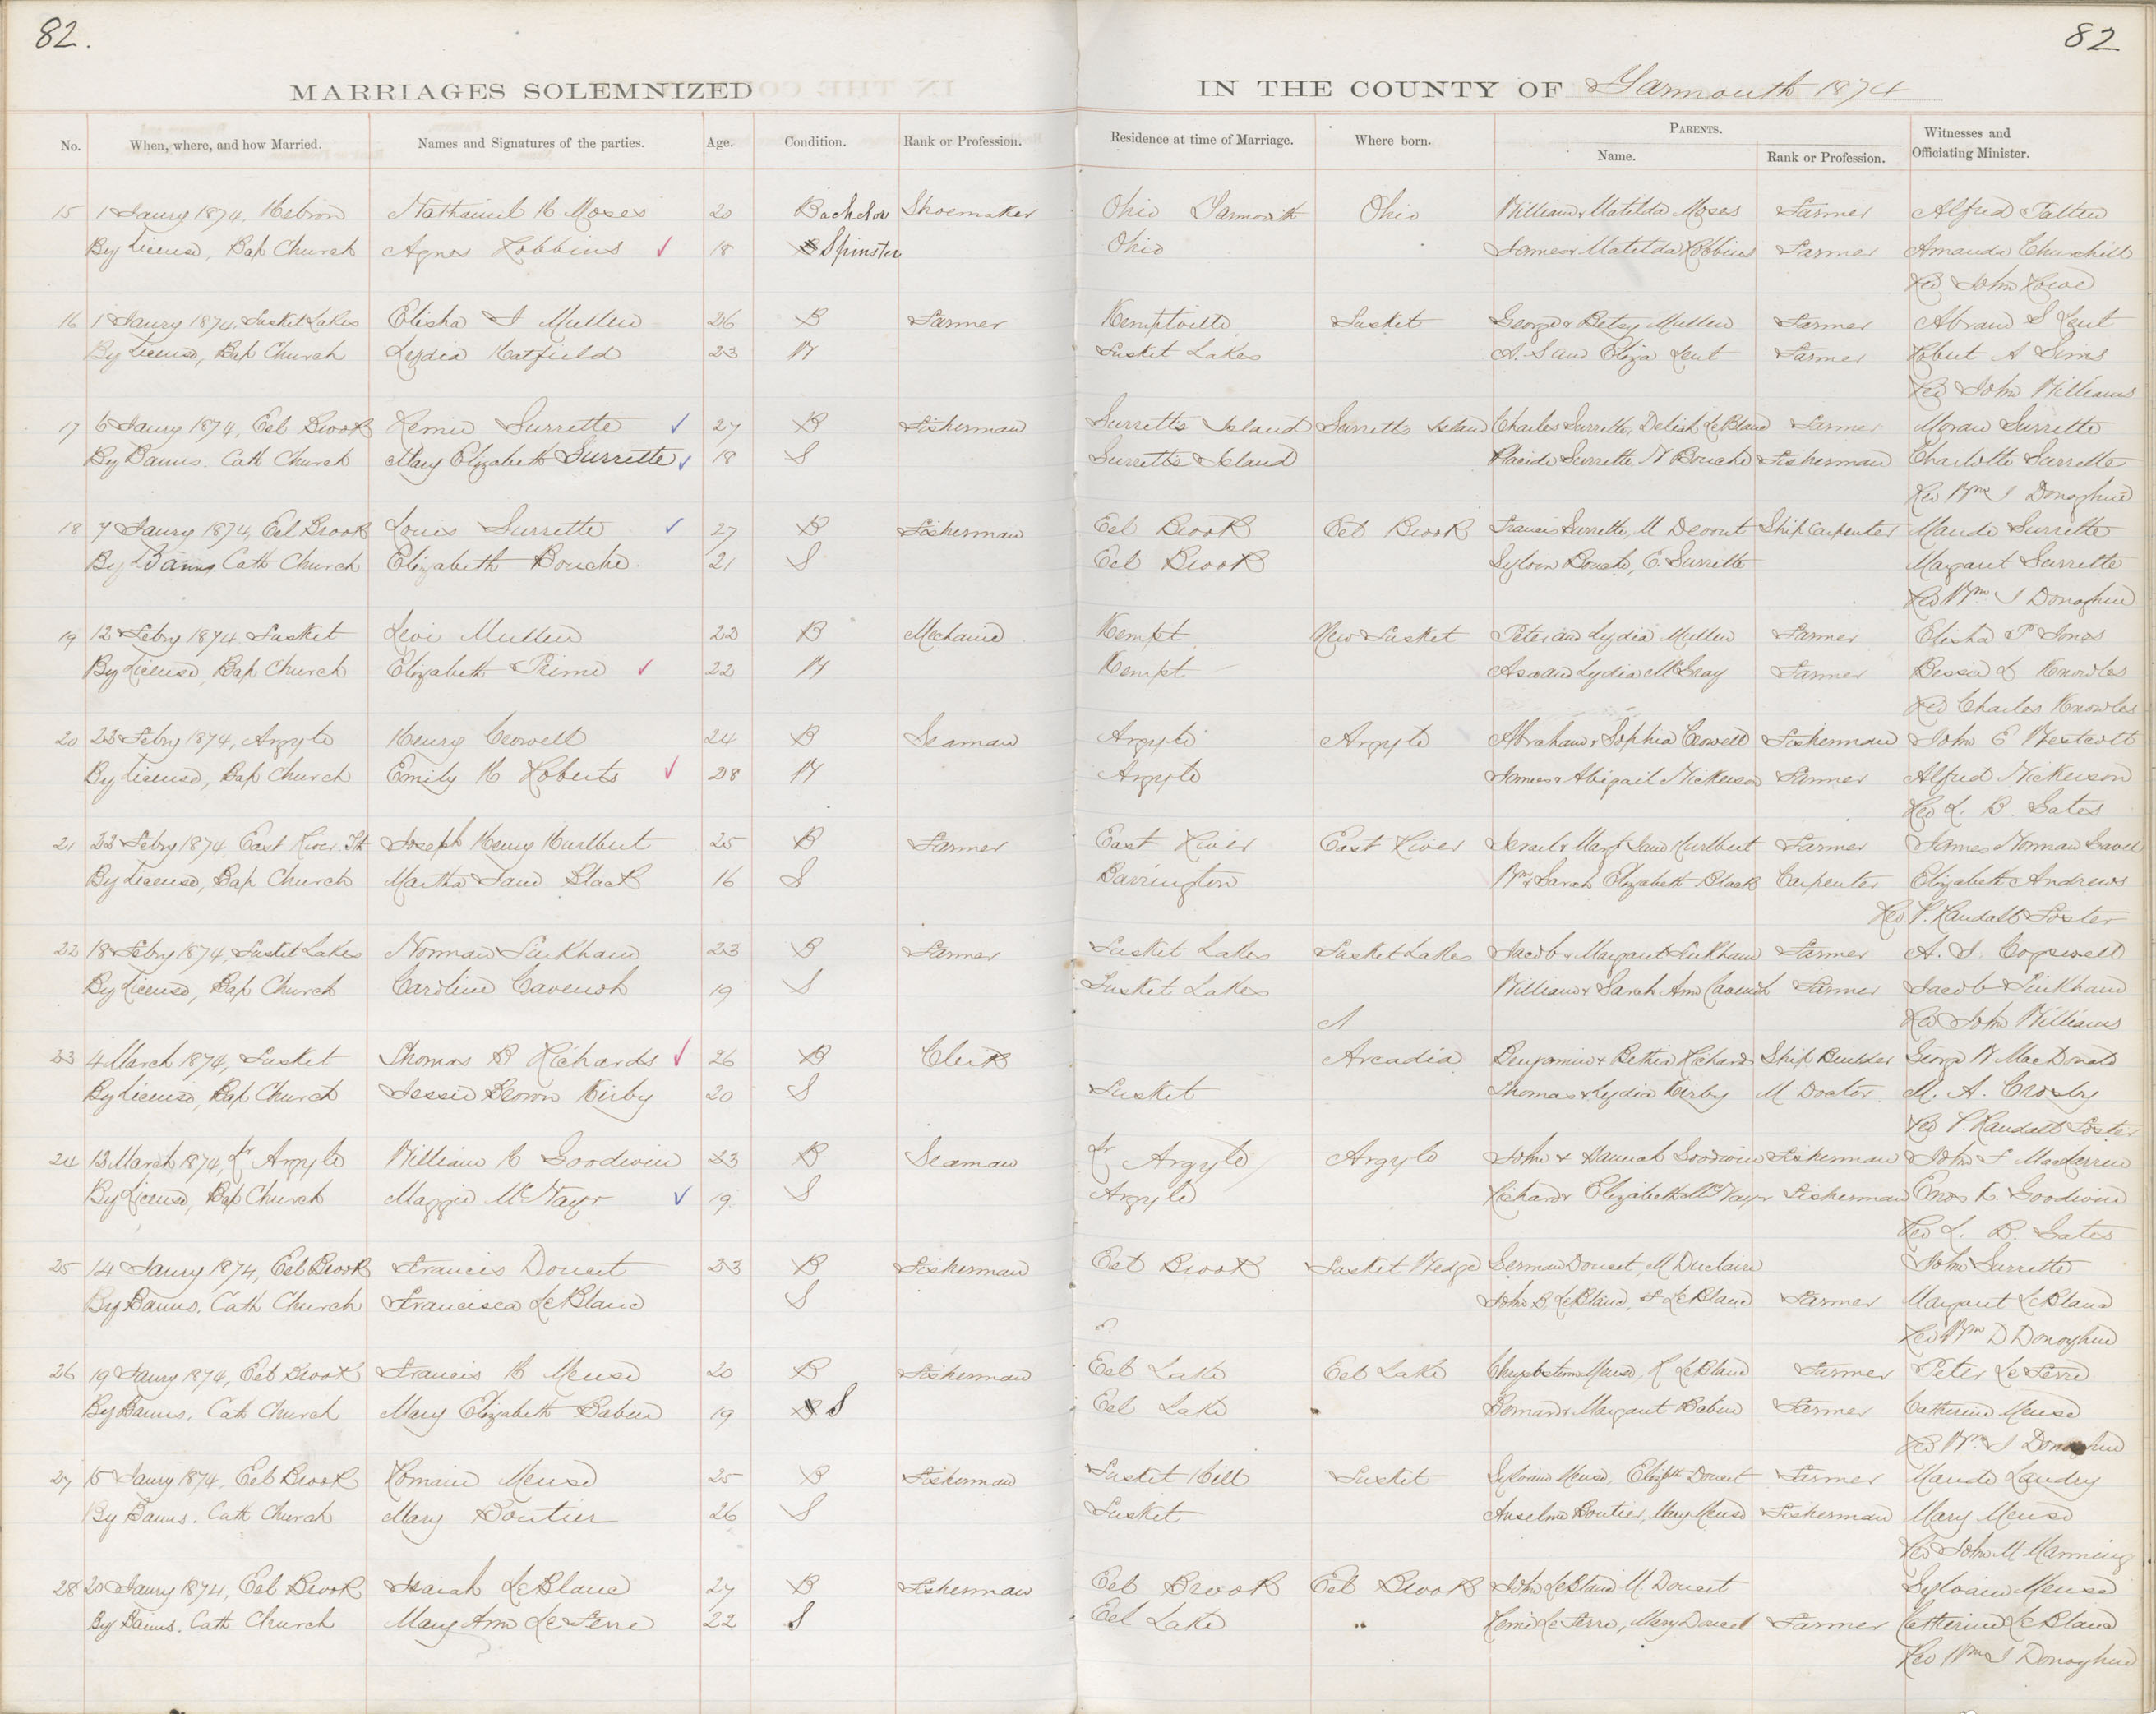 82. 82
MARRIAGES SOLEMNIZED IN THE COUNTY OF Yarmouth 1874
No. When, where, and how Married. Names and Signatures of the parties. Age. Condition. Rank or Profession. Residence at time of Marriage. Where born. PARENTS. Name. Rank or Profession. Witnesses and Officiating Minister.
15 1 Jaury 1874, Hebron Nathaniel H Moses 20 Bachelor Shoemaker Ohio Yarmouth Ohio William & Matilda Moses Farmer Alfred Patten
By License, Bap Church Agnes Robbins 18 Spinster Ohio James & Matilda Robbins Farmer Amanda Churchill
Rev John Rowe
16 1 Jaury 1874, Tusket Lakes Elisha J Mullen 26 B Farmer Kemptville Tusket George & Betsy Mullen Farmer Abram S Lent
By License, Bap Church Lydia Hatfield 23 W Tusket Lakes A. S and Eliza Lent Farmer Robert A Sims
Rev John Williams
17 6 Jaury 1874, Eel Brook Remie Surrette 27 B Fisherman Surretts Island Surretts Island Charles Surrette, Delish LeBlanc Farmer Moran Surrette
By Banns. Cath Church Mary Elizabeth Surrette 18 S Surretts Island Placide Surrette N Bouche Fisherman Charlotte Surrette
Rev Wm J Donoghue
18 7 Jaury 1874, Eel Brook Louis Surrette 27 B Fisherman Eel Brook Eel Brook Francis Surrette, M Ship Carpenter Maude Surrette
By Banns, Cath Church Elizabeth Bouche 21 S Eel Brook Sylvain Bouche, E. Surrette Margaret Surrette
Rev Wm J Donoghue
19 12 Febry 1874 Tusket Levi Mullen 22 B Mechanic Kempt New Tusket Peter and Lydia Mullen Farmer Elisha P Jones
By License, Bap Church Elizabeth Prime 22 W Kempt Asa and Lydia McGray Farmer Bessie L Knowles
Rev Charles Knowles
20 23 Febry 1874, Argyle Henry Crowell 24 B Seaman Argyle Argyle Abraham & Sophia Crowell Fisherman John E Westcott
By License, Bap Church Emily H Roberts 28 W Argyle James & Abigail Nickerson Farmer Alfred Nickerson
Rev L. B. Gates
21 22 Febry 1874, East River Joseph Henry Hurlburt 25 B Farmer East River East River Israel & Margt Jane Hurlburt Farmer James Norman
By License, Bap Church Martha Jane Black 16 S Barrington Wm & Sarah Elizabeth Black Carpenter Elizabeth Andrews
Rev P. Randall Foster
22 18 Febry 1874, Tusket Lakes Norman Pinkham 23 B Farmer Tusket Lakes Tusket Lakes Jacob & Margaret Pinkham Farmer A. J. Cogswell
By License, Bap Church Caroline Cavensh 19 S Tusket Lakes William & Sarah Ann Cavensh Farmer Jacob Pinkham
Rev John Williams
23 4 March 1874, Tusket Thomas B Richards 26 B Clerk Arcadia Benjamin & Bethia Richards Ship Builder George W MacDonald
By License, Bap Church Jessie Brown Kirby 20 S Tusket Thomas & Lydia Kirby M Doctor. M. A. Crosby
Rev P. Randall Foster
24 13 March 1874, Lr Argyle William H Goodwin 23 B Seaman Lr Argyle Argyle John & Hannah Goodwin Fisherman John F MacLarren
By License, Bap Church Maggie McNayr 19 S Argyle Richard & Elizabeth McNayr Fisherman Enos K. Goodwin
Rev L. B. Gates
25 14 Jaury 1874, Eel Brook Francis Doucet 23 B Fisherman Eel Brook Tusket Wedge German Doucet, M Duclaire John Surrette
By Banns. Cath Church Francisca LeBlanc S John B LeBlanc, F LeBlanc Farmer Margaret LeBlanc
Rev Wm D Donoghue
26 19 Jaury 1874, Eel Brook Francis H Meuse 20 B Fisherman Eel Lake Eel Lake Chrysostom Meuse, R LeBlanc Farmer Peter LeFerre
By Banns. Cath Church Mary Elizabeth Babin 19 S Eel Lake Bernard & Margaret Babin Farmer Catherine Meuse
Rev Wm J Donoghue
27 15 Jaury 1874, Eel Brook Romain Meuse 25 B Fisherman Tusket Hill Tusket Sylvain Meuse, Elizbth Doucet Farmer Maude Landry
By Banns. Cath Church Mary Boutier 26 S Tusket Anselm Boutier, Mary Meuse Fisherman Mary Meuse
Rev John M Manning
28 20 Jaury 1874, Eel Brook Isaiah LeBlanc 27 B Fisherman Eel Brook Eel Brook John LeBlanc M. Doucet Sylvain Meuse
By Banns. Cath Church Mary Ann LeFerre 22 S Eel Lake " Remi LeFerre, Mary Doucet Farmer Catherine LeBlanc
Rev Wm J Donoghue